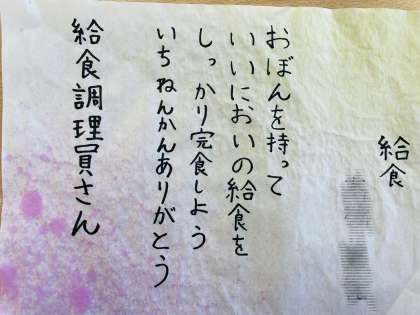 給食
おぼんを持って
いいにおいの給食を
しっかり完食しよう
いちねんかんありがとう
給食調理員さん